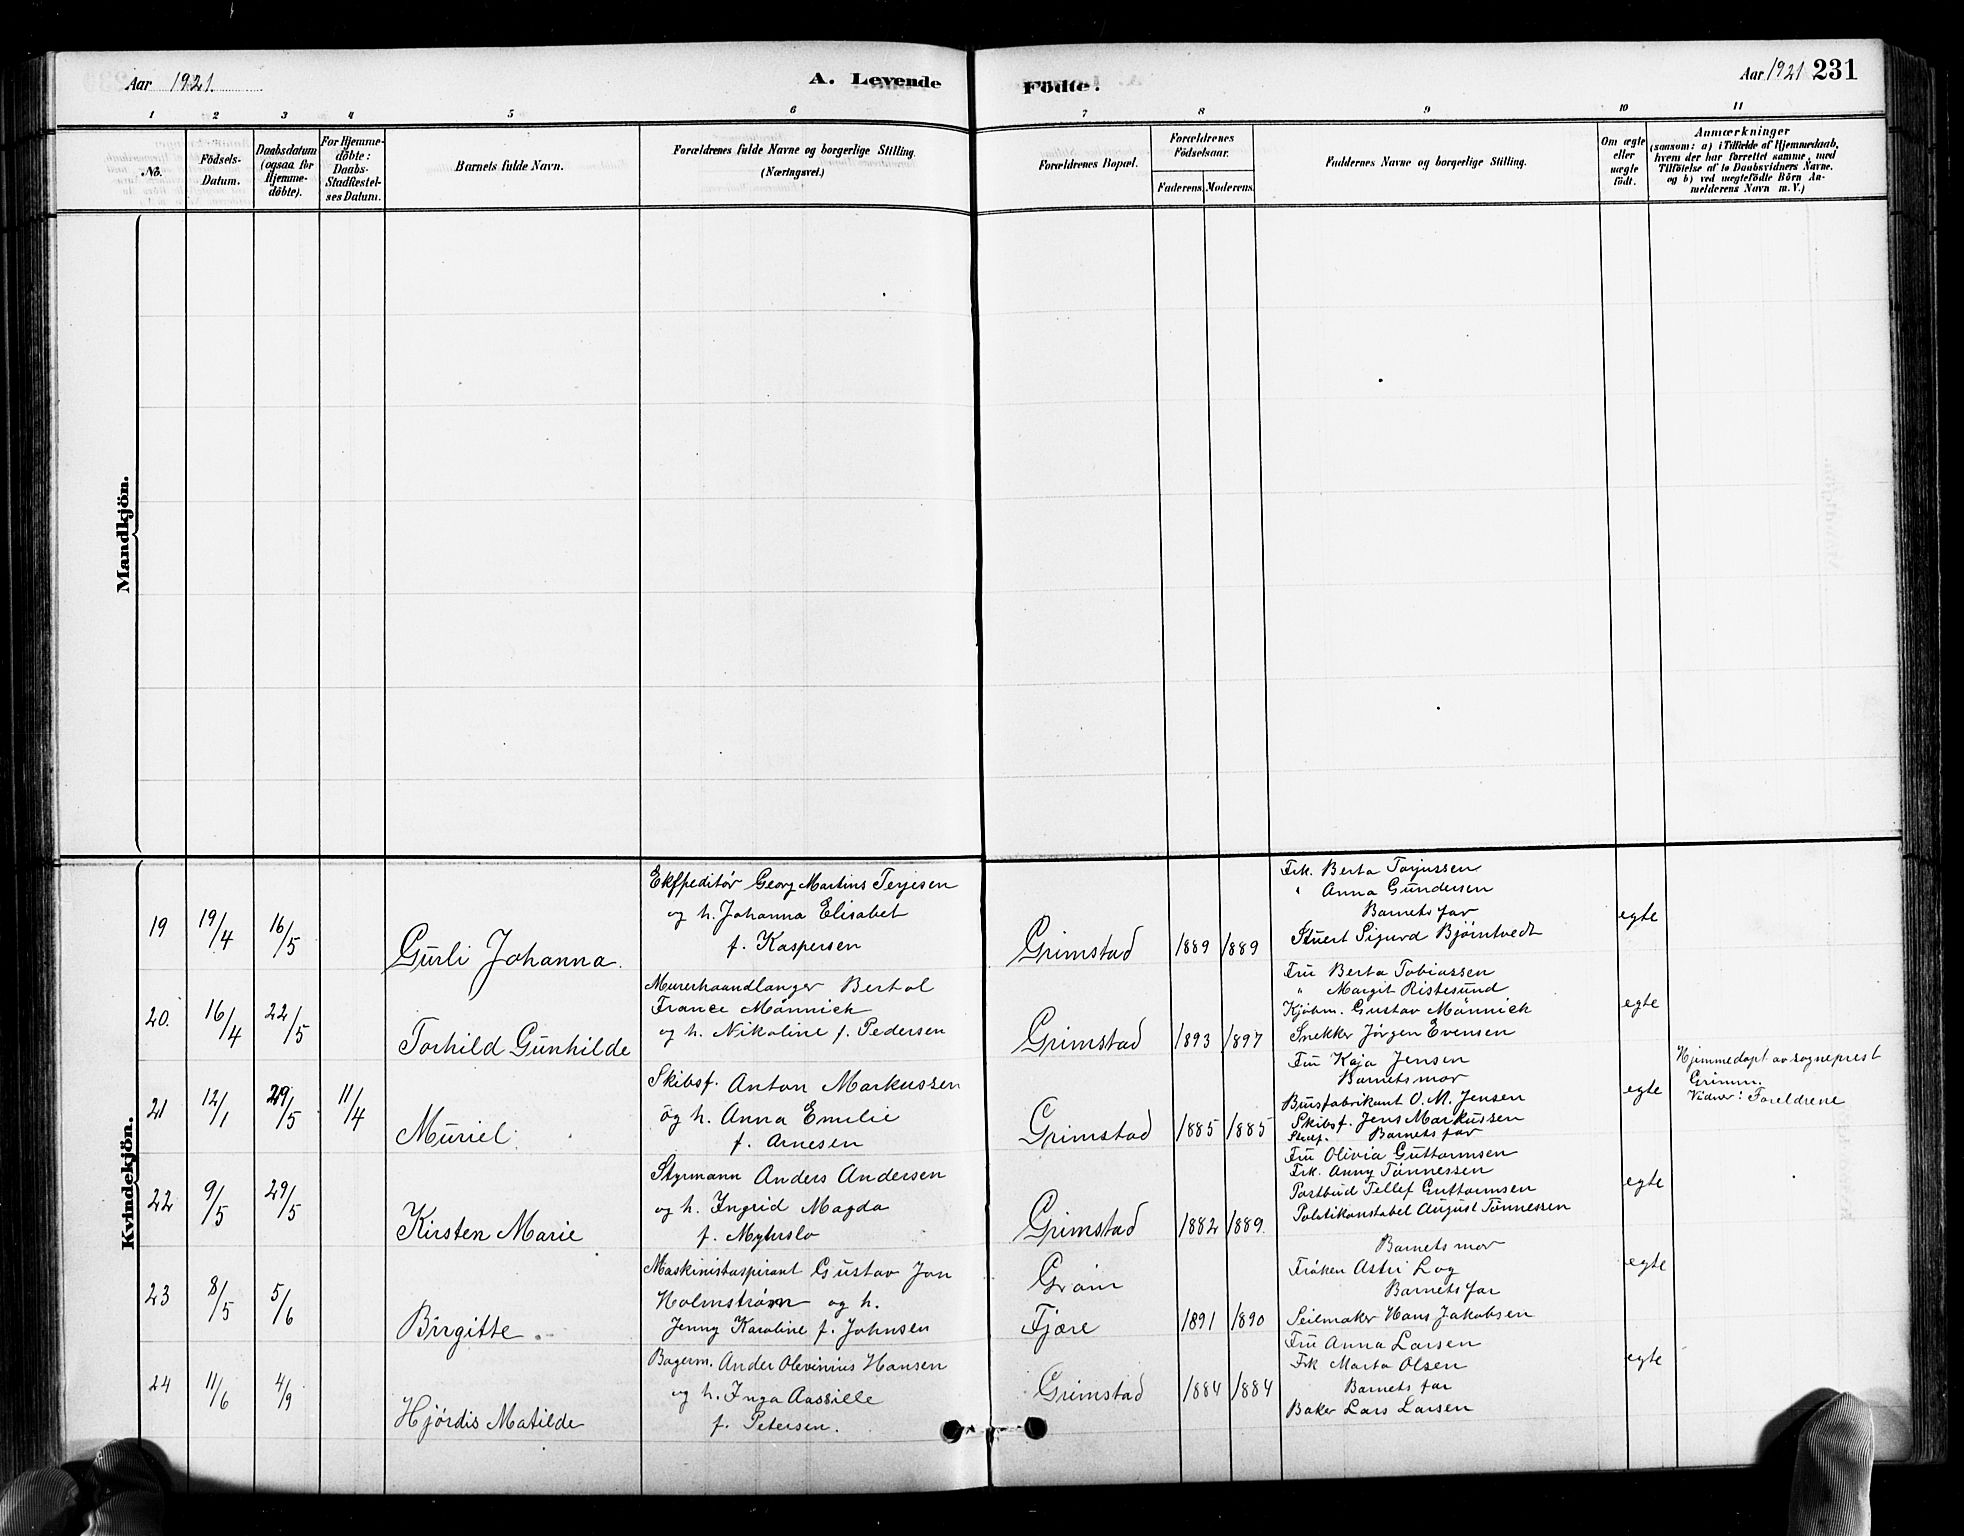 Aar 1921.
A. Levende
Födte.
Aar 1921 231
1 2 3 4 5 6 7 8 9 10 11
No.
Födsels-
Datum.
Daabsdatum
(ogsaa for
Hjemme-
döbte).
For Hjemme-
döbte:
Daabs-
Stadfæstel-
ses Datum.
Barnets fulde Navn.
Forældrenes fulde Navne og borgerlige Stilling.
(Næringsvei.)
Forældrenes Bopæl.
Forældrenes
Födselsaar.
Faderens. Moderens.
Faddernes Navne og borgerlige Stilling.
Om ægte
eller
uægte
födt.
Anmærkninger
(saasom: a) i Tilfælde af Hjemmedaab,
hvem der har forrettet samme, med
Tilföielse af to Daabsvidners Navne.
og b) ved uægtefödte Börn An-
melderens Navn m. V.)
Mandkjön.
Kvindekjön.
19 19/4 16/5
Gurli Johanna.
Ekspeditör Georg Martins Terjesen
og h. Johanna Elisabet
f. Kaspersen
Grimstad 1889 1889
Frk. Berta Torjussen
" Anna Gundersen
Barnets far
Stuert Sigurd Bjørntvedt
egte
20. 16/4 22/5
Torhild Gunhilde
Murerhaandlanger Bertol
France Mönnich
og h. Nikoline f. Pedersen
Grimstad 1893 1897
Fru Berta Tobiassen
" Margit Ristesund
Kjøbm. Gustav Mönnich
Snekker Jørgen Evensen
egte
21 12/1 29/5 11/4
Muriel.
Skibsf. Anton Markussen
og h. Anna Emilie
f. Arnesen
Grimstad 1885 1885
Fru Kaja Jensen
Barnets mor
Brusfabrikant O. M. Jensen
Skibsf. Jens Markussen
Barnets far
egte
Hjemmedøpt av sogneprest
Grimm.
Vidner: Foreldrene
22 9/5 29/5
Kirsten Marie
Styrmann Anders Andersen
og h. Ingrid Magda
f. Myhrslo
Grimstad 1882 1889.
Fru Olivia Guttormsen
Frk. Anny Tønnessen
Postbud Tellef Guttormsen
Politikonstabel August Tønnessen
egte
23 8/5 5/6
Birgitte.
Maskinistaspirant Gustav Jon
Holmström og h.
Jenny Karoline f. Johnsen
Grøm
Fjære 1891 1890
Barnets mor
Frøken Astri Log
Barnets far
Seilmaker Hans Jakobsen
egte
24 11/6 4/9
Hjördis Matilde
Bagerm. Ander Olevinius Hansen
og h. Inga Aassille
f. Petersen.
Grimstad 1884 1884
Fru Anna Larsen
Frk Marta Olsen
Barnets far
Baker Lars Larsen
egte